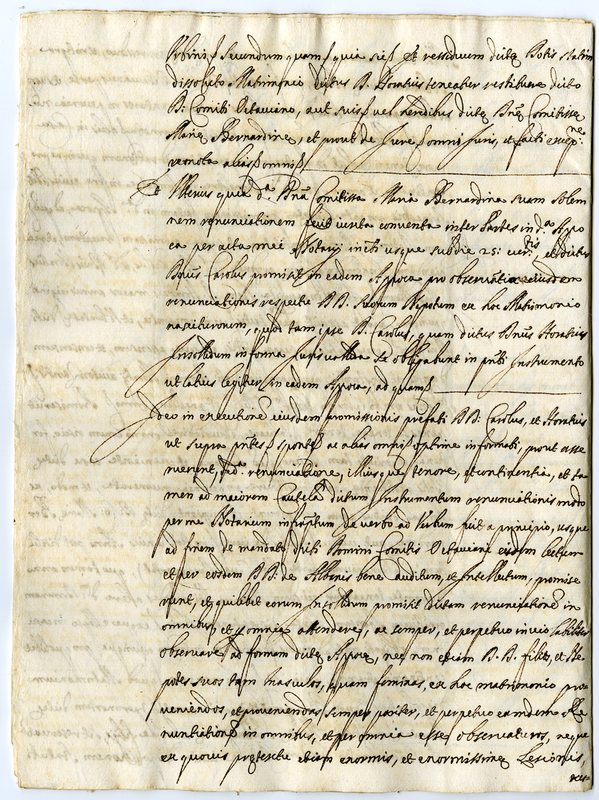 secundum quam quia sic et residuum dictę Dotis statim
dissoluto Matrimonio dictus D. Horatius teneatur restituere dicto
D. Comiti Octaviano, aut suis vel heredibus dictę Dnę Comitissę
Marię Bernardinę, et prout de Jure omni Juris, et facti excep.ne
remota alias omni
Et Ulterius quia d.a Dna Comitissa Maria Bernardina suam solem
nem renunciationem fecit iuxta conventa inter Partes in d.a Apo
ca per acta mei Notarij infti usque sub die 25: et dictus
Dnus Carolus promisit in eadem Apoca pro observatione eiusdem
renunciationis respectu DD. suorum Nepotum ex hoc Matrimonio
nasciturorum, quod tam ipse D. Carolus, quam dictus Dnus Horatius
Insolidum in forma Juris valida se obligabunt in pnti Instrumento
ut latius legitur in eadem Apoca, ad quam
Ideo in executione eiusdem promissionis prefati DD. Carolus, et Horatius
ut supra pntes sponte ac alias omni optime informati, prout asse
ruerunt, de d.a renunciatione, illiusque tenore, et continentia, et ta
men ad maiorem Cautelam dictum Instrumentum renunciationis modo
per me Notarium infrascriptum de verbo ad verbum fuit a principio, usque
ad finem de mandato dicti Domini Comitis Octaviani eisdem lectum
et per eosdem DD. de Albenis bene auditum, et Intellectum, promise
runt, et quilibet eorum Insolidum promisit dictam renunciationem in
omnibus, et omnia attendere, ac semper, et perpetuo inviolabiliter
observare ad formam dictę Apocę, nec non etiam D. D. filios, et Ne
potes suos tam masculos, quam feminas, ex hoc matrimonio pro
veniendos, et proveniendas, semper pariter, et perpetuo eamdem Re
nuntiationem in omnibus, et per omnia esse observaturos, neque
ex quovis pretextu etiam enormis, et enormissimę Lesionis,